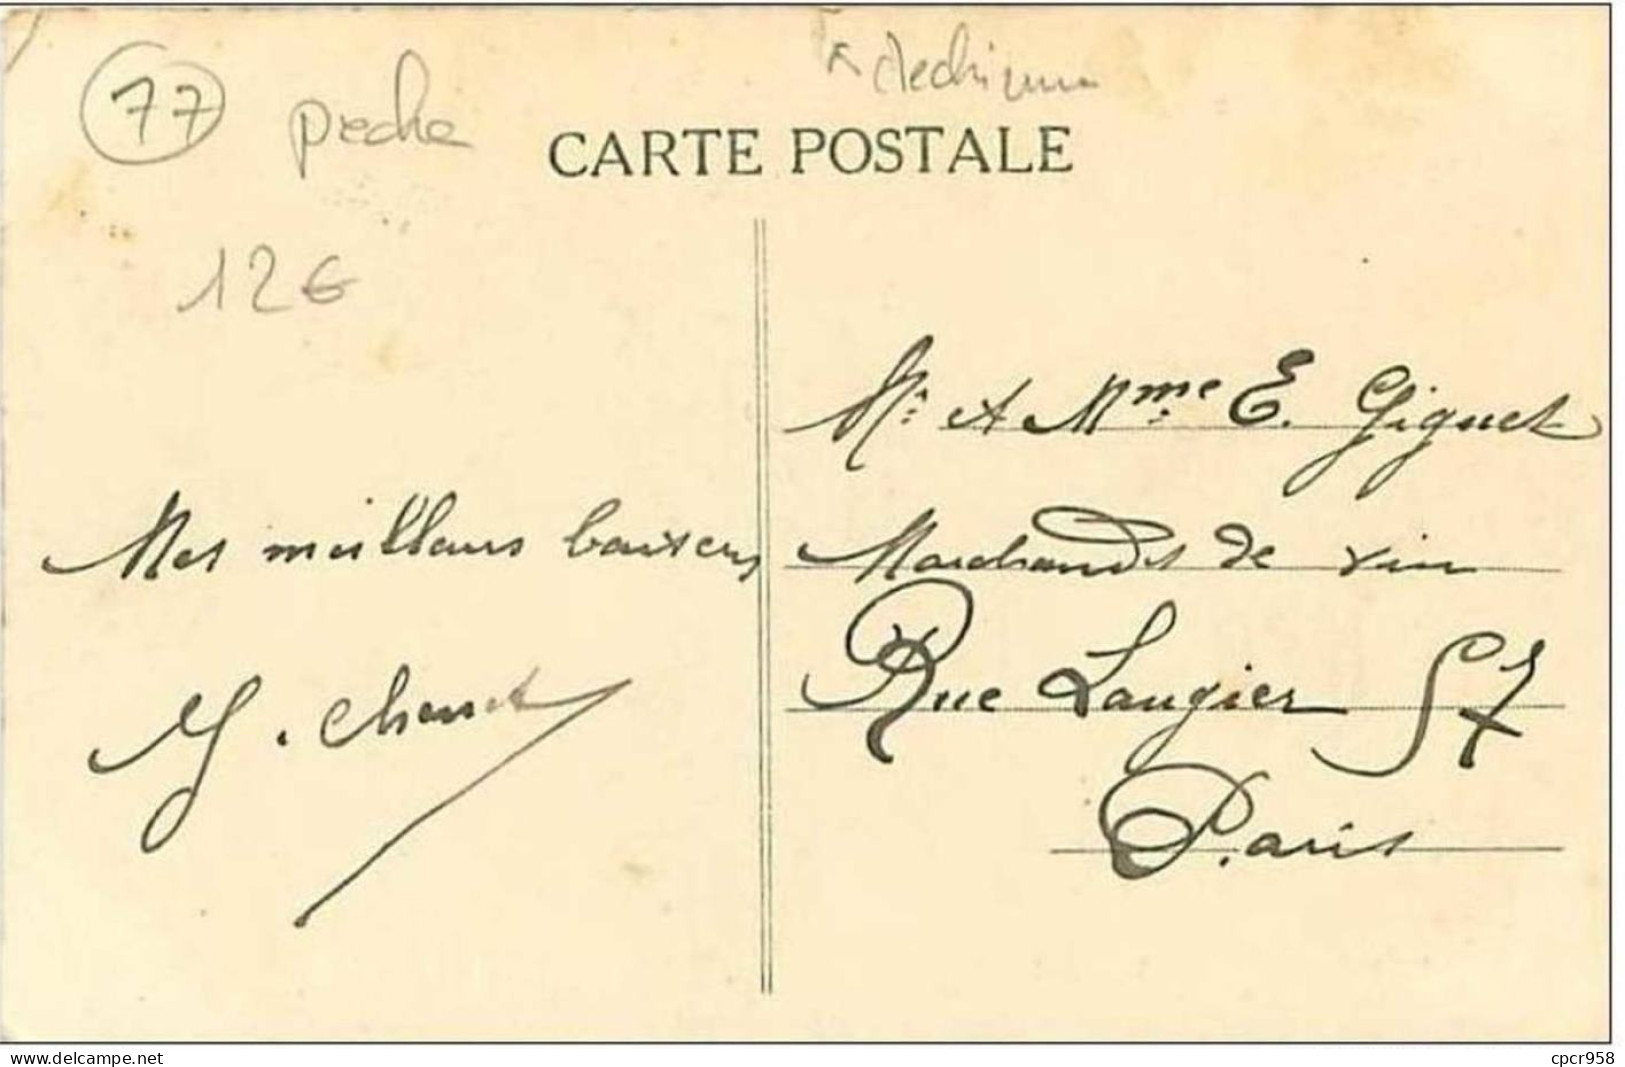 77 peche
déchirure
CARTE POSTALE
12€
Mr et Mme E. Giguet
Mes meilleurs baisers
Marchands de vin
Rue Laugier 57
Paris
www.delcampe.net
cpcr958